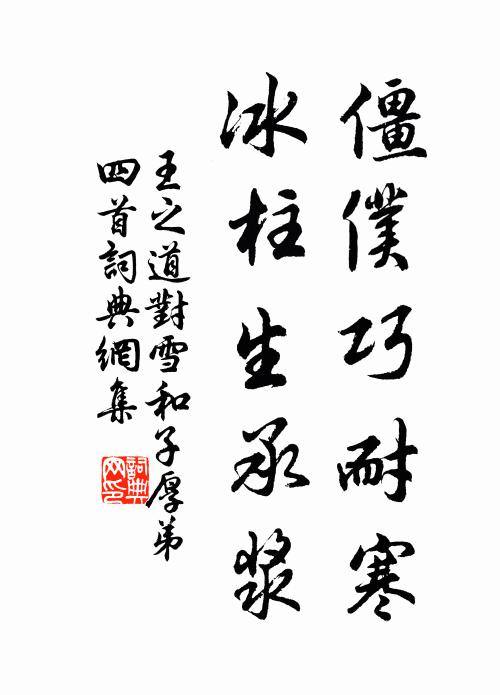 僵僕巧耐寒
冰柱生承漿
王之道對雪和子厚弟
四首詞典網集
詞典网印